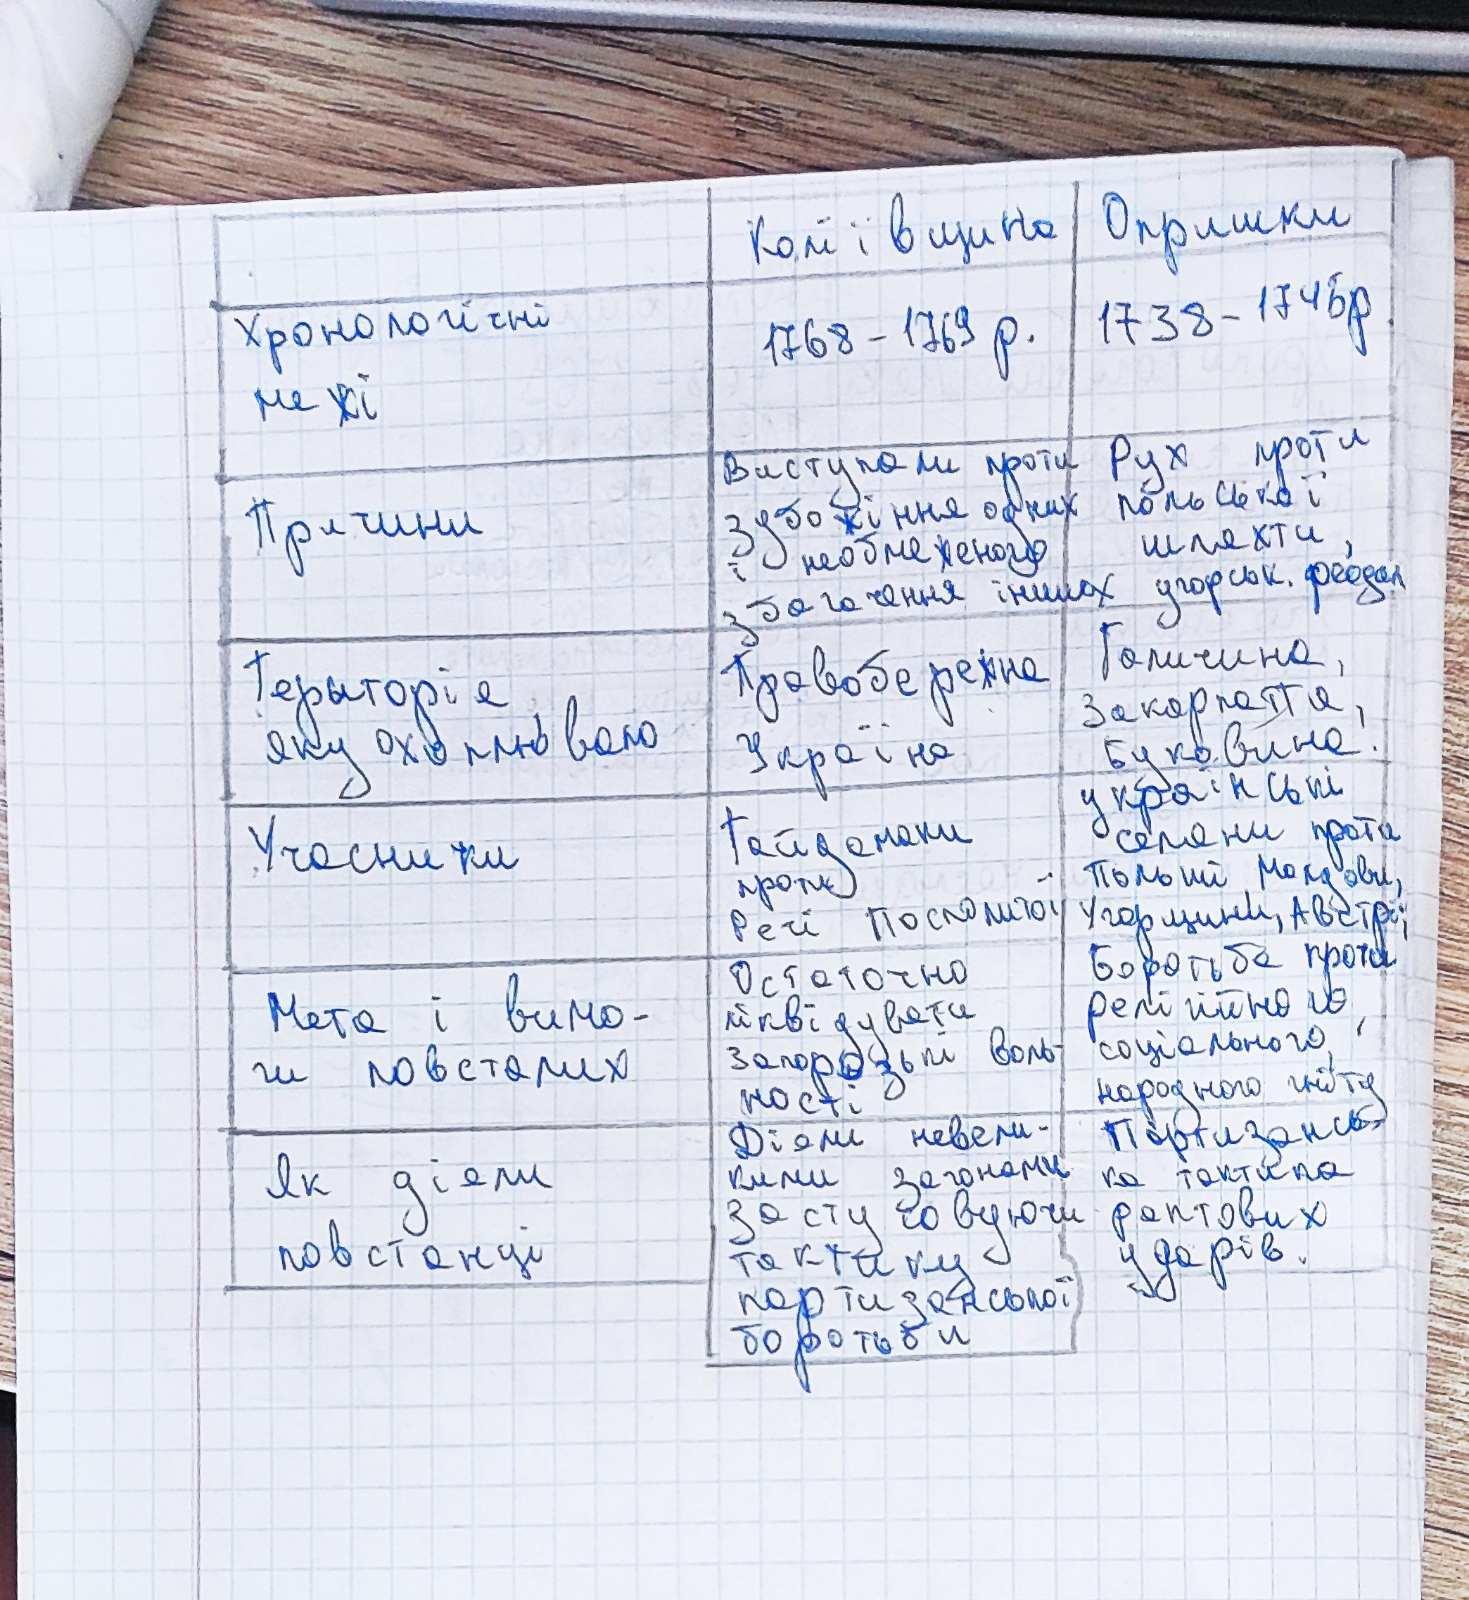 Коліївщина Опришки
Хронологічні
межі
1768 - 1769 р.
1738 - 1745р.
Причини
Виступали проти
зубожіння одних
і необмеженого
збагачення інших
Рух проти
польської
шляхти,
угорськ. феодал
Територія
яку охоплювало
Правобережна
Україна
Галичина,
Закарпаття,
Буковина.
Учасники
Гайдамаки
проти
Речі Посполитої
українські
селяни проти
Польщі Молдови,
Угорщини, Австрії,
Мета і вимо-
ги повсталих
Остаточно
ліквідувати
запорозькі воль-
ності
Боротьба проти
релігійного,
соціального,
народного гніту
Як діяли
повстанці
Діяли невели-
кими загонами
застусовуючи
тактику
партизанської
боротьби
Партизансь-
ка тактика
раптових
ударів.